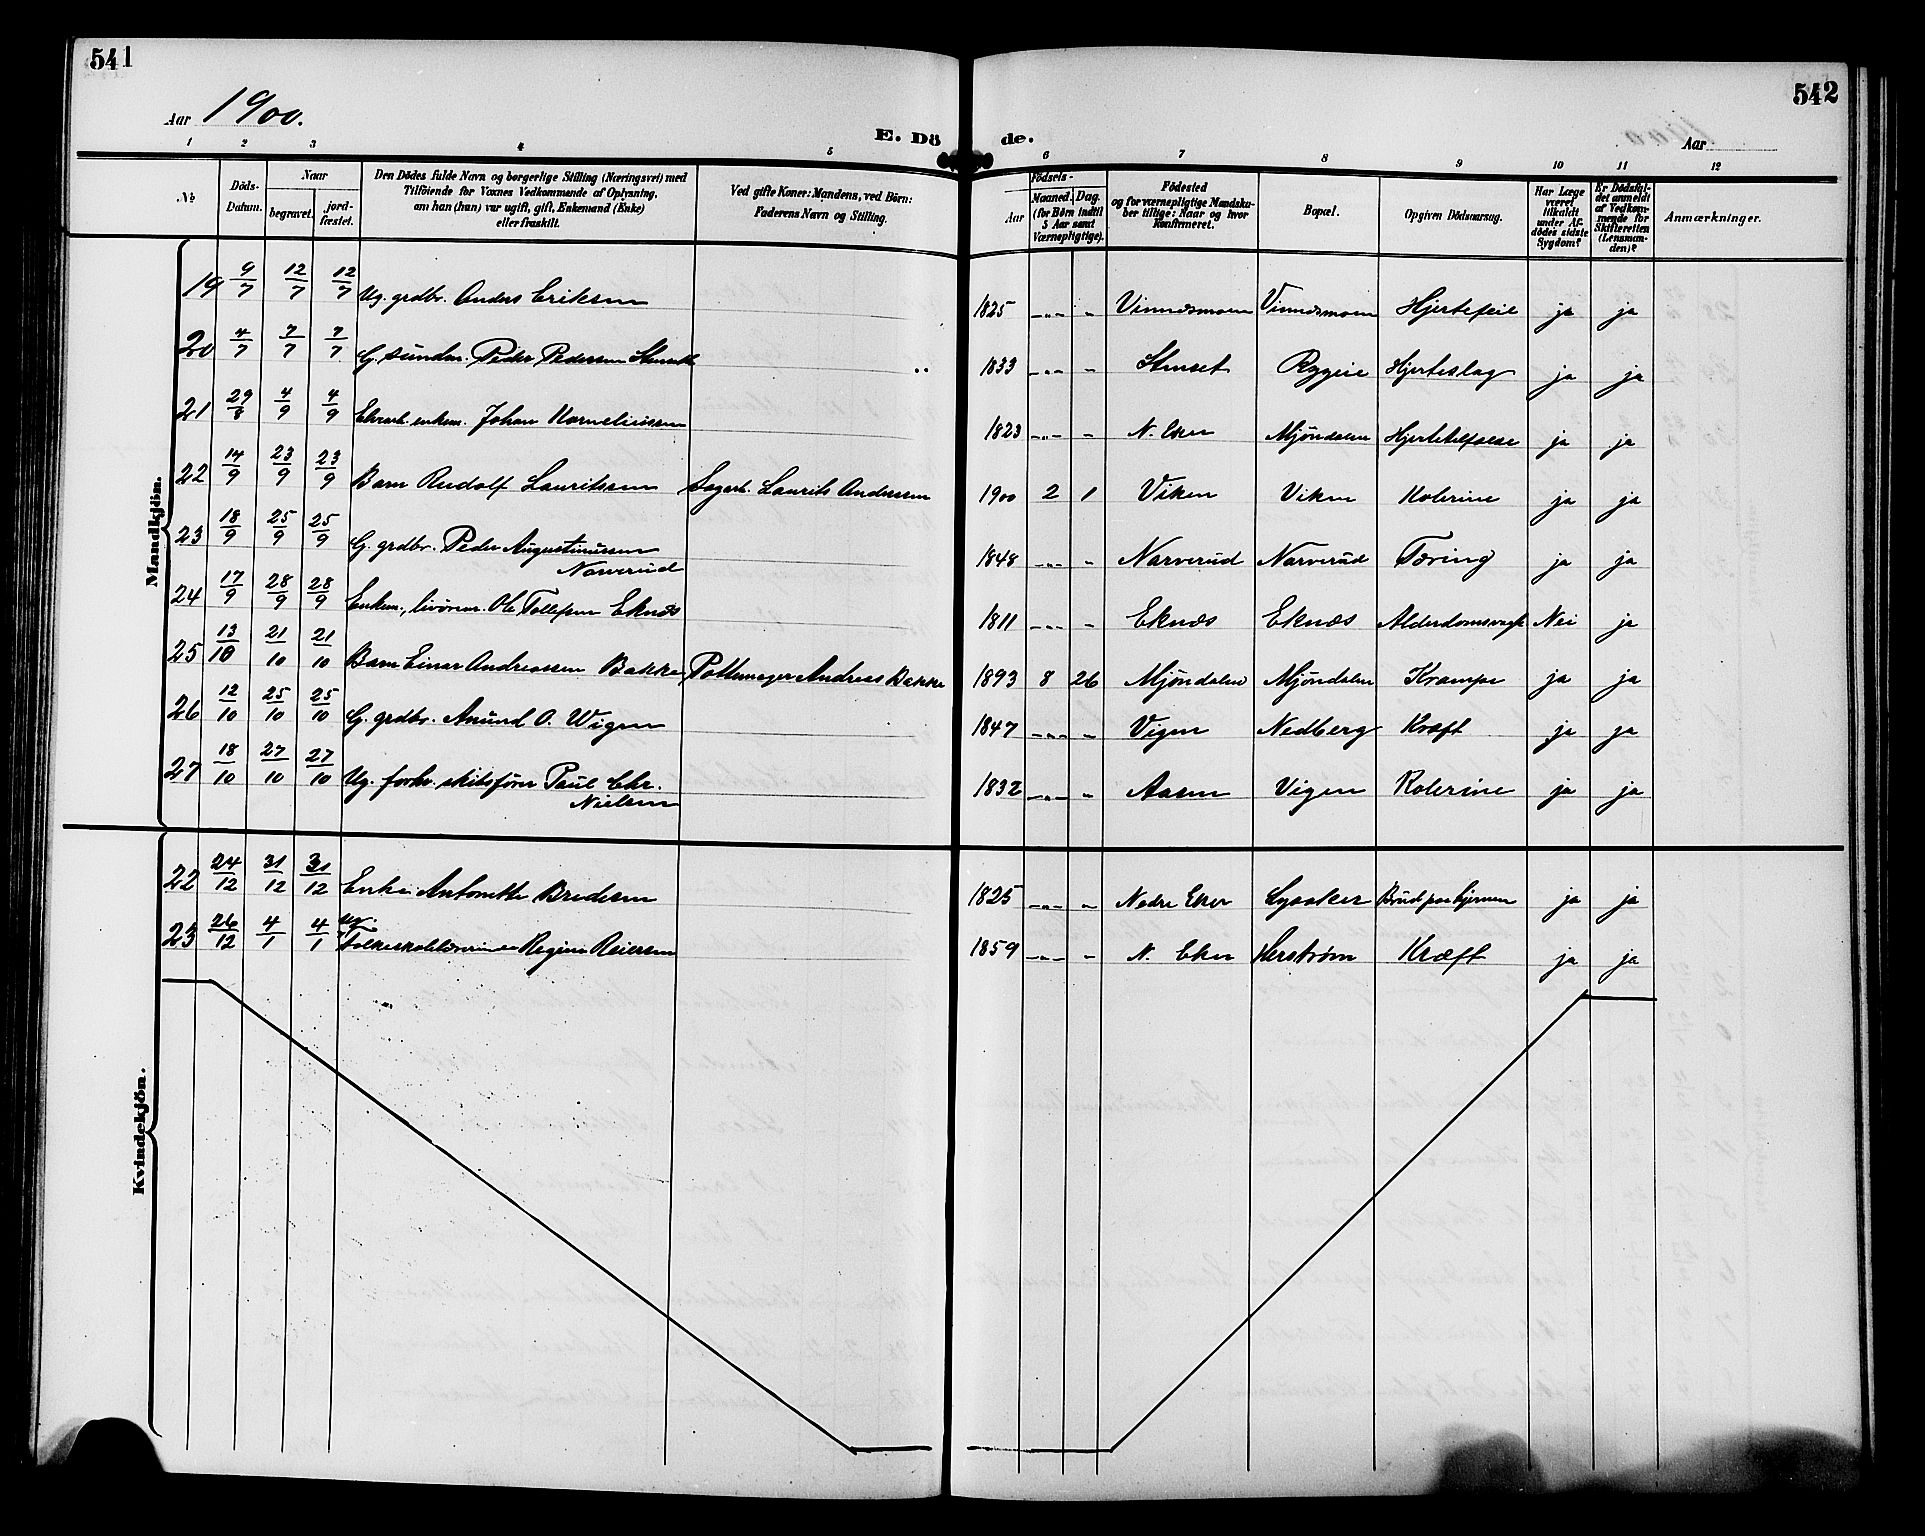 541
542
Aar 1900.
Aar
E. Dö de.
1 2 3 4 5 6 7 8 9 10 11 12
No
Döds-
Datum.
Naar
begravet.
jord-
fæstet.
Den Dödes fulde Navn og borgerlige Stilling (Næringsvei) med
Tilföiende for Voxnes Vedkommende af Oplysning,
om han (hun) var ugift, gift, Enkemand (Enke)
eller fraskilt.
Ved gifte Koner: Mandens, ved Börn:
Faderens Navn og Stilling.
Födsels-
Aar
Maaned. Dag.
(for Børn indtil
5 Aar samt
Værnepligtige).
Födested
og for værnepligtige Mandska-
ber tillige: Naar og hvor
Konfirmeret.
Bopæl.
Opgiven Dödsaarsag.
Har Læge
været
tilkaldt
under Af-
dödes sidste
Sygdom?
Er Dödsfal-
det anmeldt
af Vedkom-
mende for
Skifteretten
(Lensman-
den)?
Anmærkninger.
Mandkjön.
19 9/7 12/7 12/7 Ug. grdbr. Anders Eriksen 1825 -„- „ Vinnesmoen Vinnesmoen Hjertefeil ja ja
20 4/7 7/7 7/7 G. Peder Pedersen 1833 -„- „ Stenset Rygeie Hjerteslag ja ja
21 29/8 4/9 4/9 enkem. Johan Korneliussen 1823 -„- „ N. Eker Mjøndalen ja ja
22 14/9 23/9 23/9 Barn Rudolf Lauritssen Sagarb. Laurits Anderssen 1900 2 1 Viken Viken Kolerine ja ja
23 18/9 25/9 25/9 G. grdbr. Peder Augustinussen
Narverud 1848 -„- „ Narverud Narverud Tæring ja ja
24 17/9 28/9 28/9 Enkem., livørem. Ole Tollefsen Eknæs 1811 -„- „ Eknæs Eknæs Nei ja
25 13/10 21/10 21/10 Barn Einar Andreassen Bakke, Pottemager Andreas Bakke 1893 8 26 Mjøndalen Mjøndalen Krampe ja ja
26 12/10 25/10 25/10 G. grdbr. Anund O. Wigen 1847 -„- „ Vigen Nedberg Kræft ja ja
27 18/10 27/10 27/10 Ug. forhv. skibsfører Paul Chr.
Nielsen 1832 -„- „ Aasen Vigen Kolerine ja ja
Kvindekjön.
22 24/12 31/12 31/12 Enke Antonette Bredesen 1825 -„- „ Nedre Eker Lysaker ja ja
23 26/12 4/1 4/1 Ug.
Folkeskolelærerinde Regine Reiersen 1859 -„- „ N. Eker Herstrøm Kræft ja ja